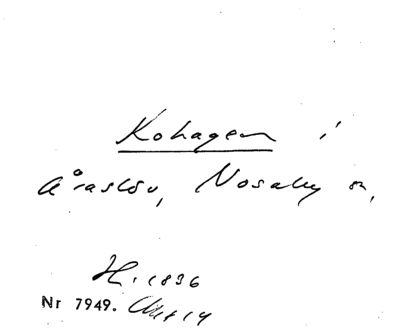 Kohagen i
Araslöv, Nosaby sn,
H. 1836
Nr 7949.